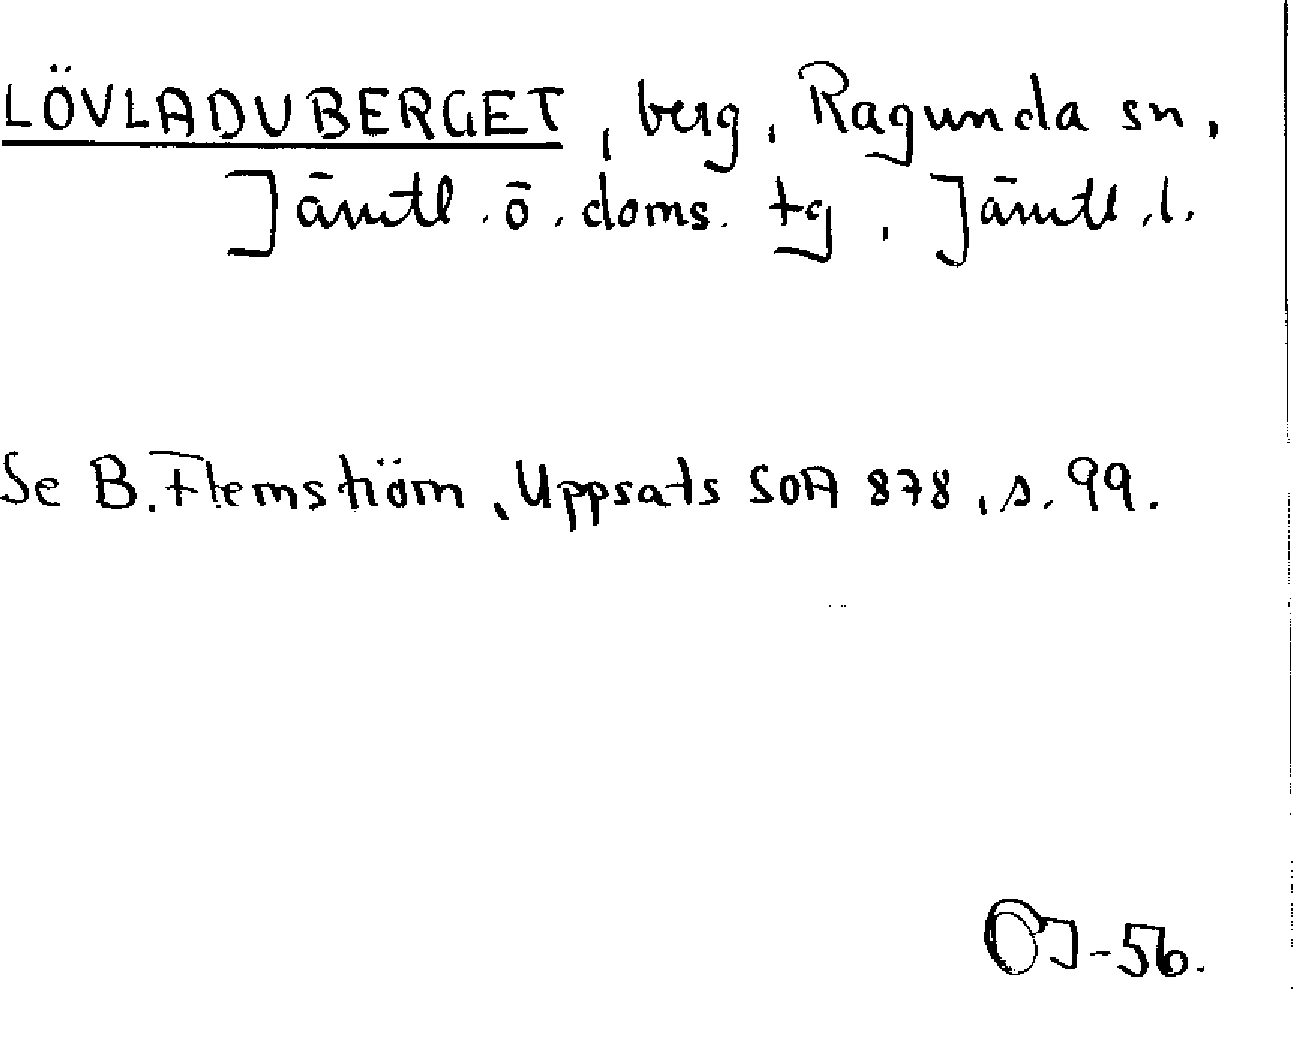 LÖVLADUBERGET, berg, Ragunda sn,
Jämtl. ö. doms. tg, Jämtl. l.
Se B. Flemström, Uppsats SOA 878, s. 99.
OJ-56.